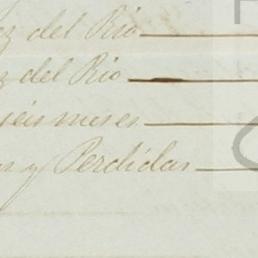 ez del Rio
z del Rio
seis meses
as y Perdidas